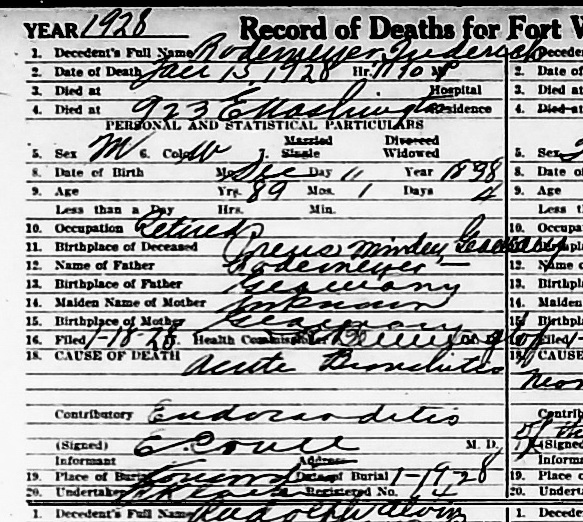 YEAR 1928 Record of Deaths for Fort W
1. Decedent's Full Name Rodemeyer, Frederick
2. Date of Death Jan 15, 1928 Hr. M
3. Died at Hospital
4. Died at 923 E Washington Residence
PERSONAL AND STATISTICAL PARTICULARS
Married Divorced
5. Sex M 6. Color W 7. Single Widowed
8. Date of Birth Mo. Dec Day 11 Year 1898
9. Age Yrs. 89 Mos. 1 Days 4
Less than a Day Hrs. Min.
10. Occupation Retired
11. Birthplace of Deceased Preus Minden, Germany
12. Name of Father Rodemeyer —
13. Birthplace of Father Germany
14. Maiden Name of Mother Unknown
15. Birthplace of Mother Germany
16. Filed 1-18-28 Health Commissioner
18. CAUSE OF DEATH Acute Bronchitis
Contributory Endocarditis
(Signed) E. M. D.
Informant Address
19. Place of Burial Date of Burial 1-19-28
20. Undertaker Registered No.
1. Decedent's Full Name Rudolph
2. Date of
3. Died at
4. Died at
5. Sex
8. Date of
9. Age
Less
10.
11.
12. Name
13.
14. Maiden
15.
16. Filed
18. CAUSE
(Signed
Informa
19. Place
20. Under
1. Decede